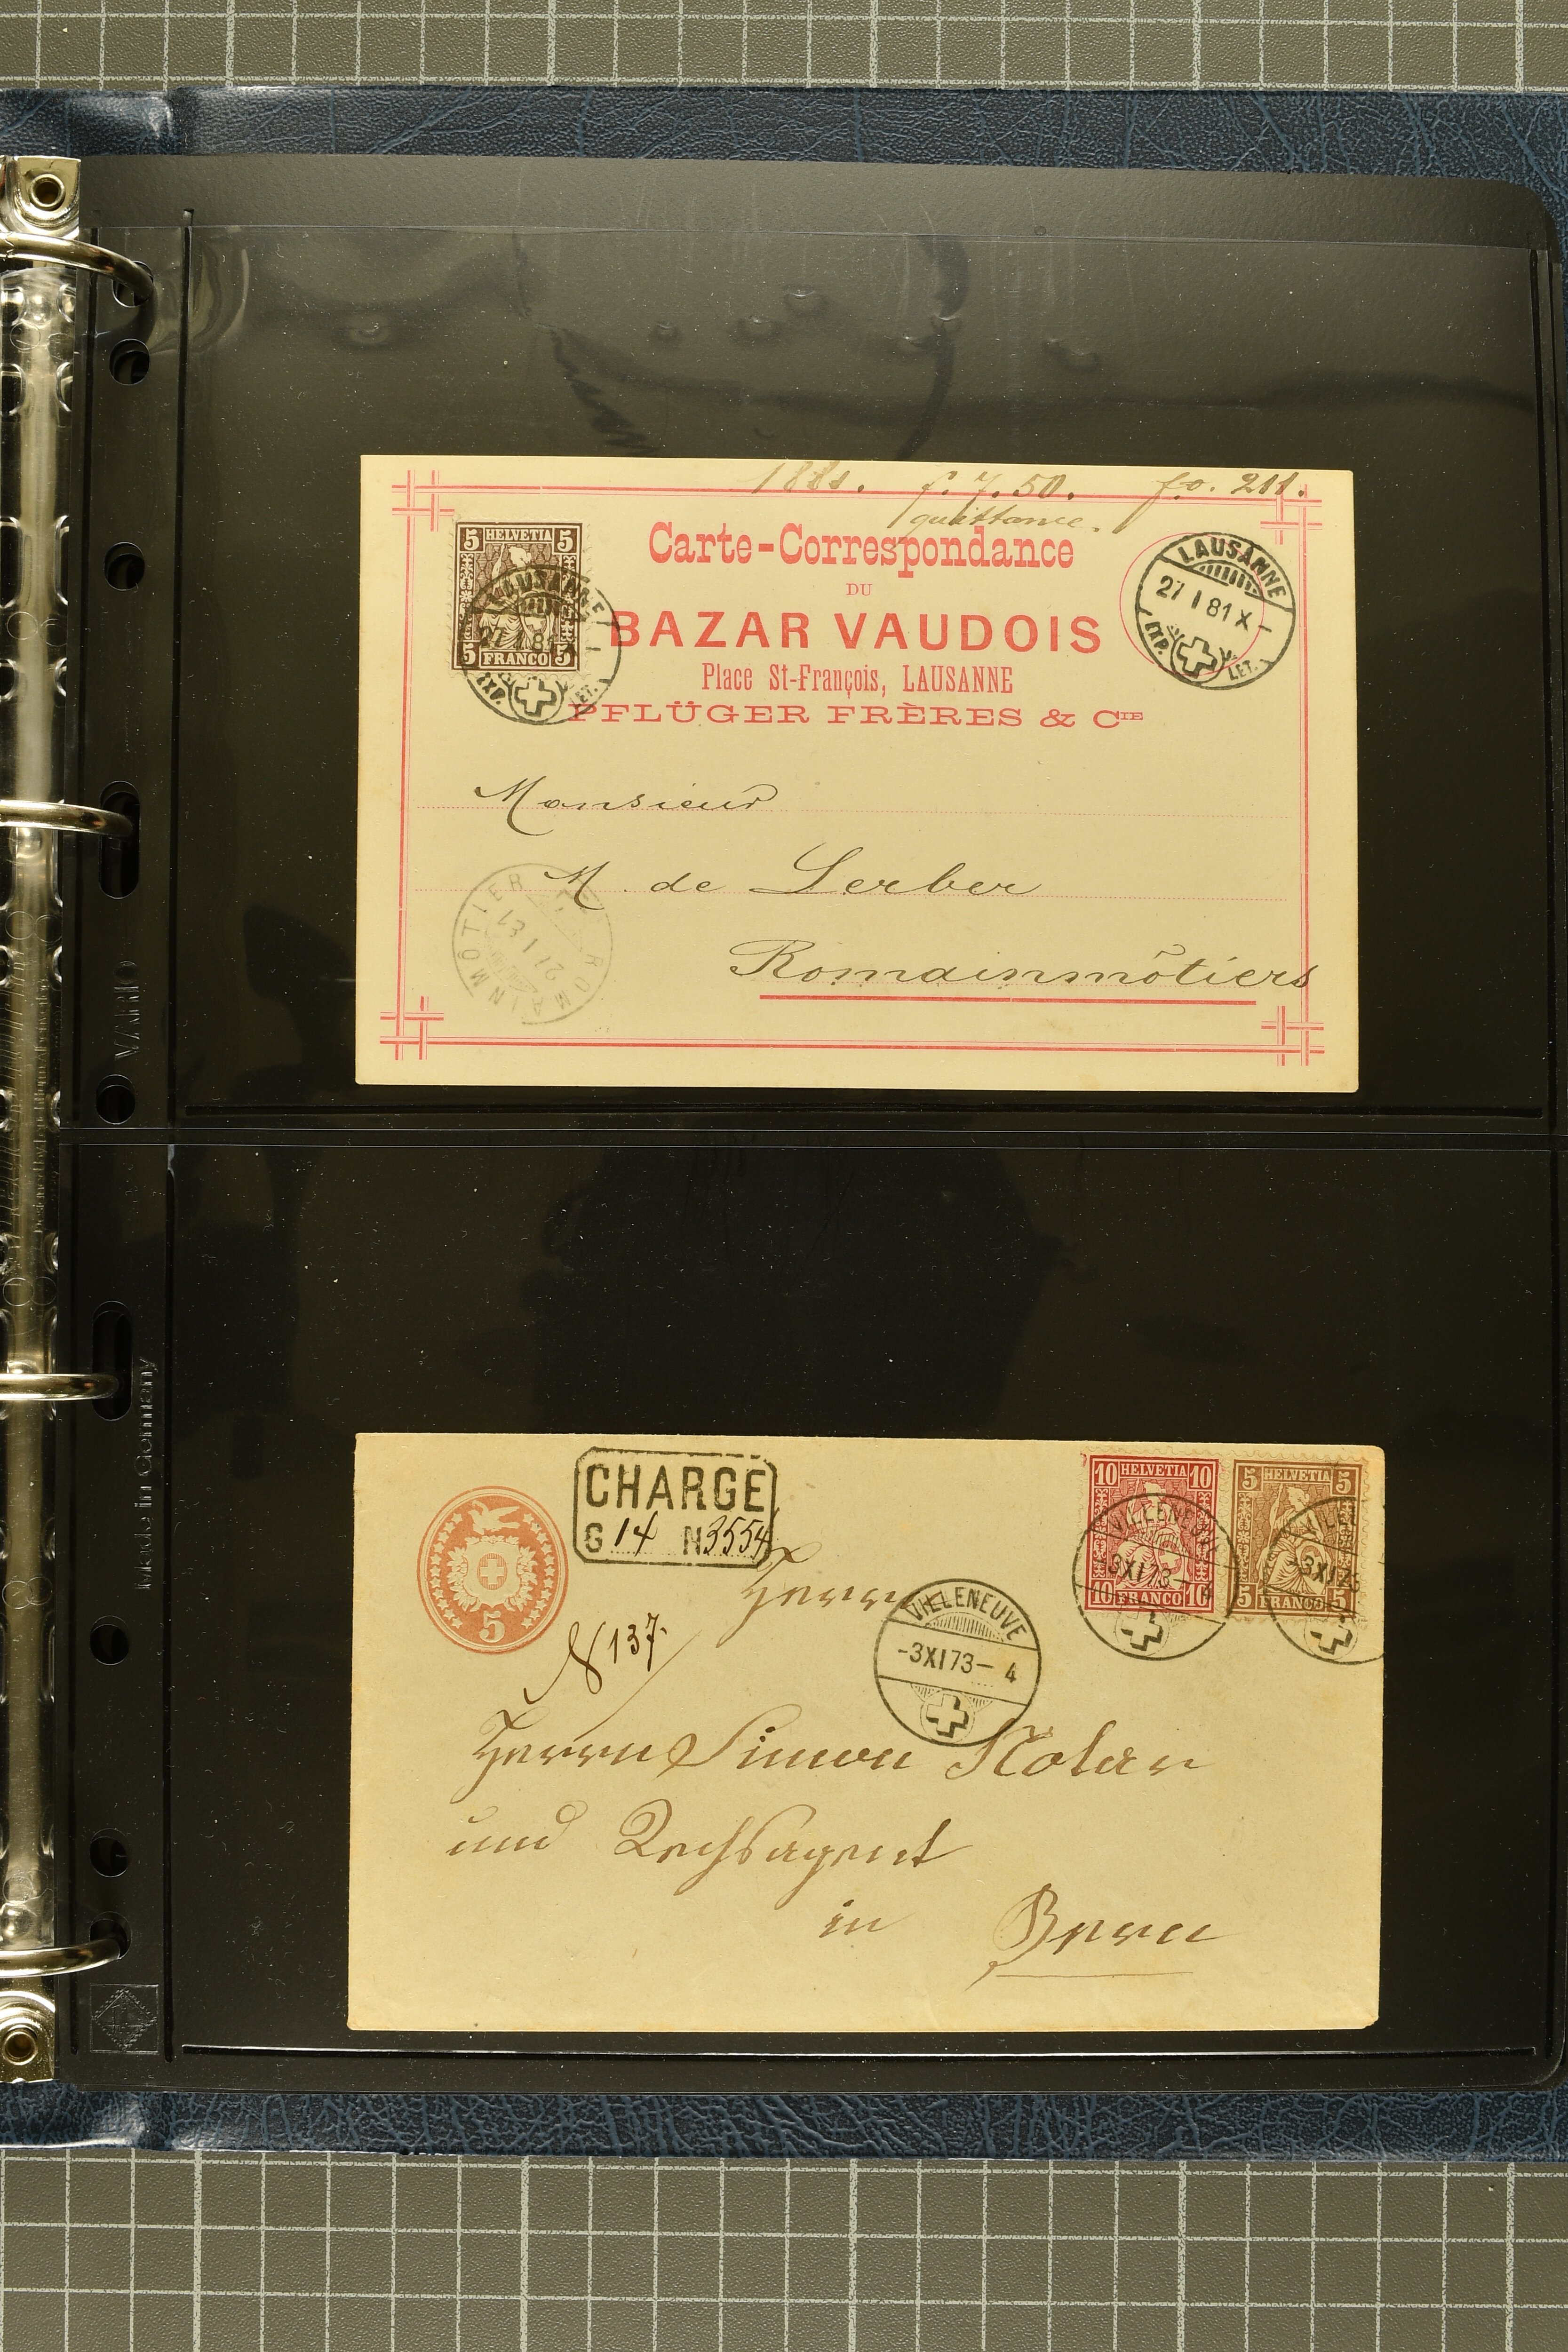 1881. f. 7.50. fo. 211.
quittance.
5 HELVETIA 5
5 FRANCO 5
LAUSANNE
27 I 81
EXP. LET.
Carte-Correspondance
DU
BAZAR VAUDOIS
Place St-François, LAUSANNE
PFLÜGER FRÈRES & CIE
LAUSANNE
27 I 81 X-
EXP. LET.
Monsieur
M. de Lerber
Romainmôtiers
ROMAINMÔTIER
VARIO
Made in Germany
5
CHARGÉ
G 14 N 3554
N 137.
Herrn
VILLENEUVE
-3 XI 73- 4
10 HELVETIA 10
10 FRANCO 10
VILLENEUVE
-3 XI 73- 4
5 HELVETIA 5
5 FRANCO 5
VILLE
-3 XI 73
Herrn Simon Notar
und Rechtsagent
in Bern